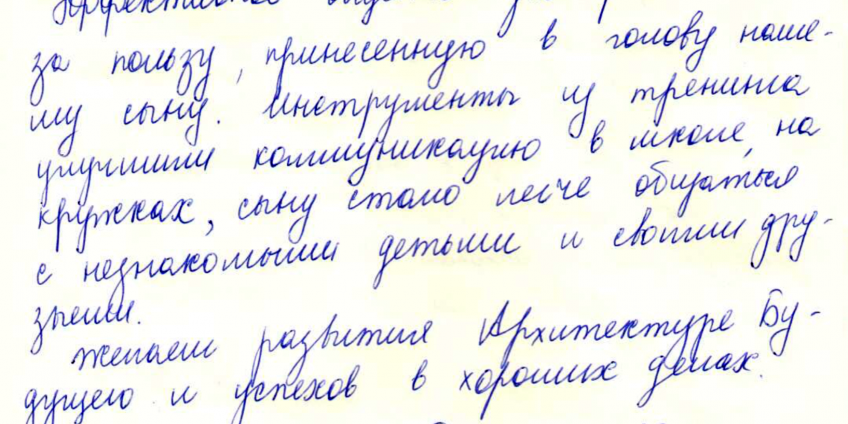 за пользу, принесенную в голову наше-
му сыну. Инструменты из тренинга
улучшили коммуникацию в школе, на
кружках, сыну стало легче общаться
с незнакомыми детьми и своими дру-
зьями.
Желаем развития Архитектуре Бу-
дущего и успехов в хороших делах.